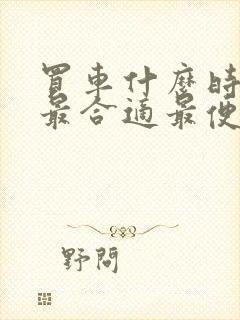 買車什麼時
最合適最便
野問